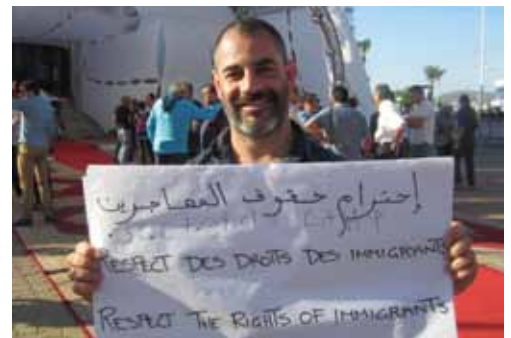 إحترام حقوق المهاجرين
RESPECT DES DROITS DES IMMIGRANTS
RESPECT THE RIGHTS OF IMMIGRANTS